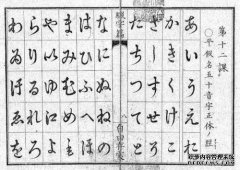 第十二課
○平假名五十音字正体ノ
あいうえお
かきくけこ
さしすせそ
たちつてと
なにぬねの
はひふへほ
まみむめも
やいゆ江よ
らりるれろ
わゐうゑを